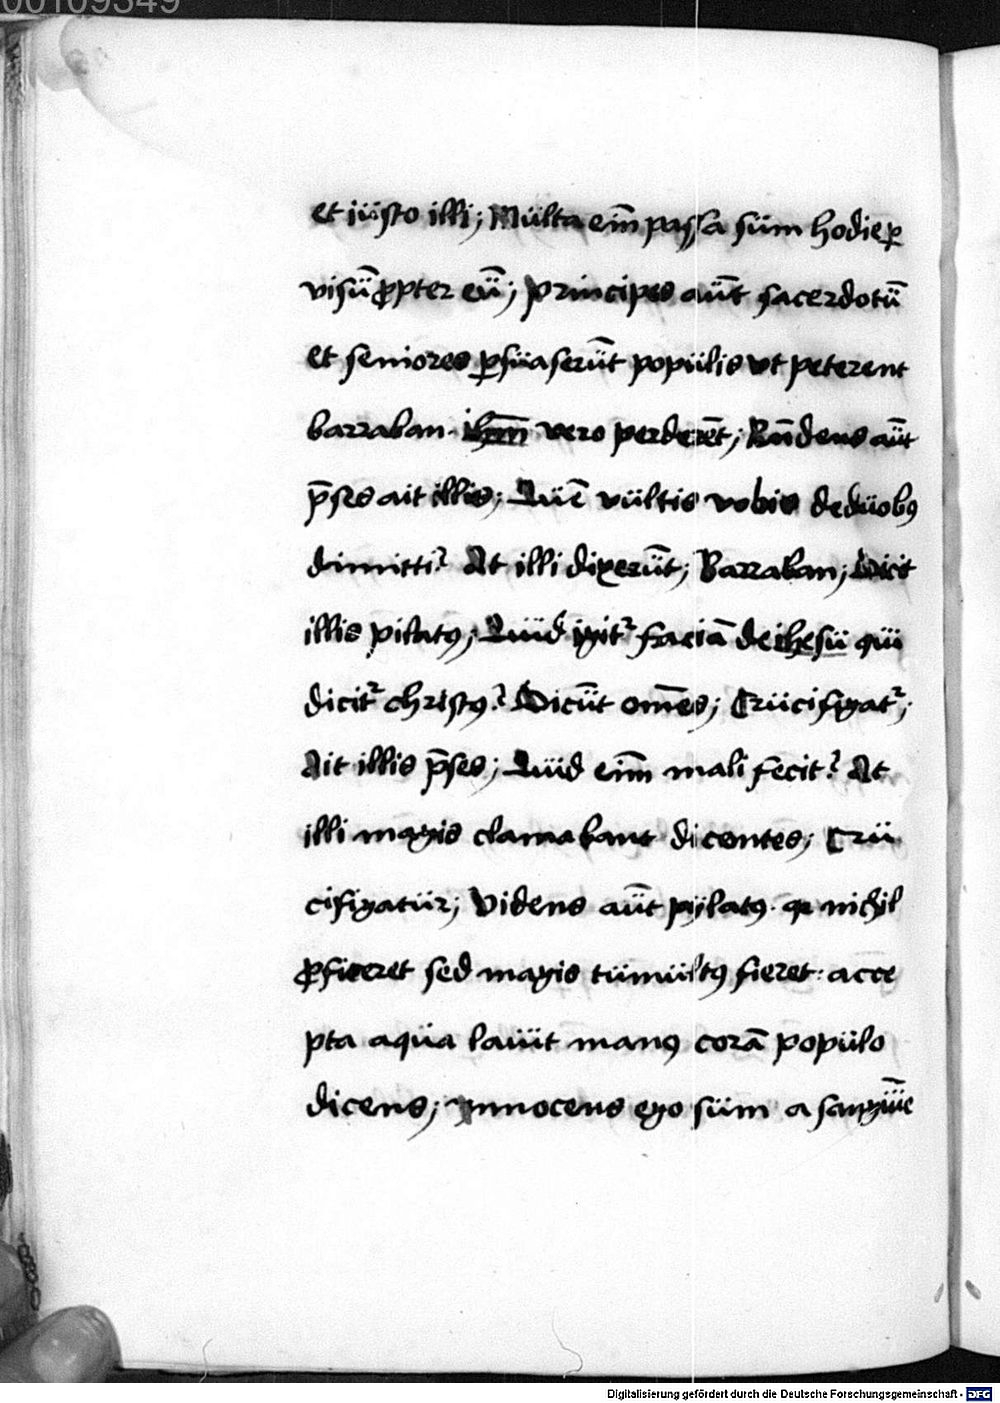 00109349
et iüsto illi; Mülta eim̄ passa süm hodie ꝑ
visṻ ꝓpter eṻ; principes aṻt sacerdotṻ
et seniores ꝑsüaserṻt popülis vt peterent
barraban. ihm̄ vero perderēt; Rn̄dens aṻt
p̄ses ait illis; Qüē vültis vobis de düobꝯ
dimitti? At illi dixerṻt; Barraban; Dicit
illis pilatꝯ; Qüid igitʳ faciā de ihesü qüi
dicitʳ christꝯ? Dicṻt om̄es; Crücifigatʳ;
Ait illis p̄ses; Qüid eim̄ mali fecit? At
illi magis clamabant dicentes; Crü
cifigatür; Videns aṻt pylatꝯ qꝛ nichil
ꝓficeret sed magis tümültꝯ fieret: acce
pta aqüa lauit manꝯ corā popülo
dicens; Innocens ego süm a sangüīe
Digitalisierung gefördert durch die Deutsche Forschungsgemeinschaft - DFG